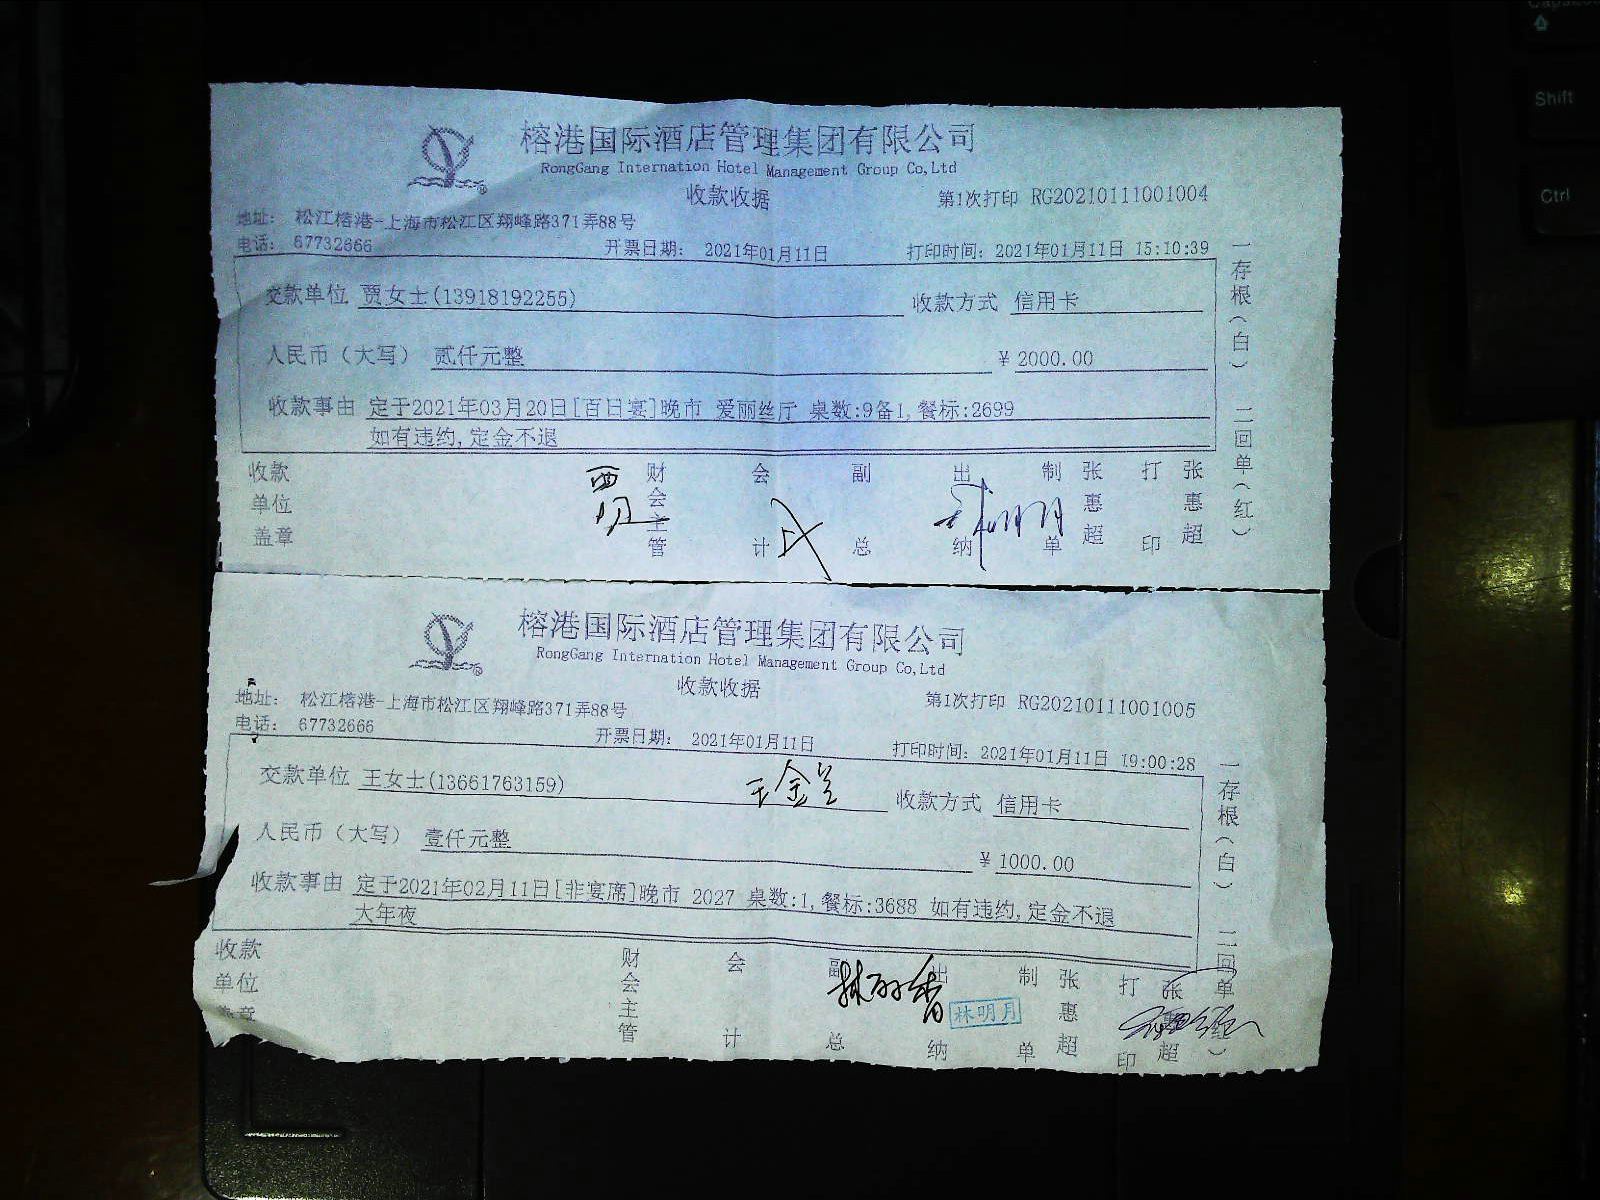 榕港国际酒店管理集团有限公司
RongGang Internation Hotel Management Group Co,Ltd
收款收据
第1次打印 RG20210111001004
地址: 松江榕港-上海市松江区翔峰路371弄88号
电话: 67732666
开票日期: 2021年01月11日
打印时间: 2021年01月11日 15:10:39
交款单位 贾女士(13918192255)
收款方式 信用卡
人民币（大写） 贰仟元整
¥ 2000.00
收款事由 定于2021年03月20日[百日宴]晚市 爱丽丝厅 桌数:9备1,餐标:2699
如有违约,定金不退
收款单位盖章 贾 财会主管 会计 副总 出纳 林明月 制单 张惠超 打印 张惠超
一存根（白） 二回单（红）
榕港国际酒店管理集团有限公司
RongGang Internation Hotel Management Group Co,Ltd
收款收据
第1次打印 RG20210111001005
地址: 松江榕港-上海市松江区翔峰路371弄88号
电话: 67732666
开票日期: 2021年01月11日
打印时间: 2021年01月11日 19:00:28
交款单位 王女士(13661763159) 王金兰
收款方式 信用卡
人民币（大写） 壹仟元整
¥ 1000.00
收款事由 定于2021年02月11日[非宴席]晚市 2027 桌数:1,餐标:3688 如有违约,定金不退
大年夜
收款单位盖章 财会主管 会计 副总 出纳 林明月 制单 张惠超 打印 张惠超
一存根（白） 二回单（红）
Shift
Ctrl